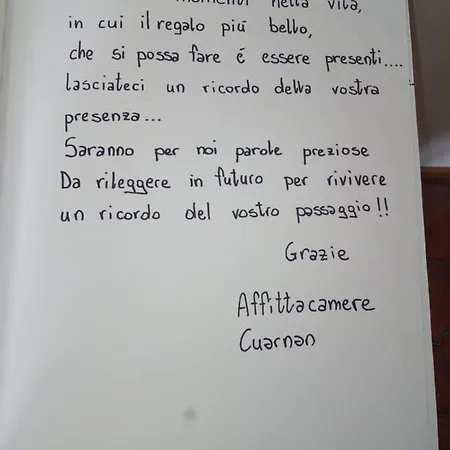 momenti nella vita,
in cui il regalo piú bello,
che si possa fare é essere presenti....
lasciateci un ricordo della vostra
presenza...
Saranno per noi parole preziose
Da rileggere in futuro per rivivere
un ricordo del vostro passaggio!!
Grazie
Affittacamere
Cuarnan